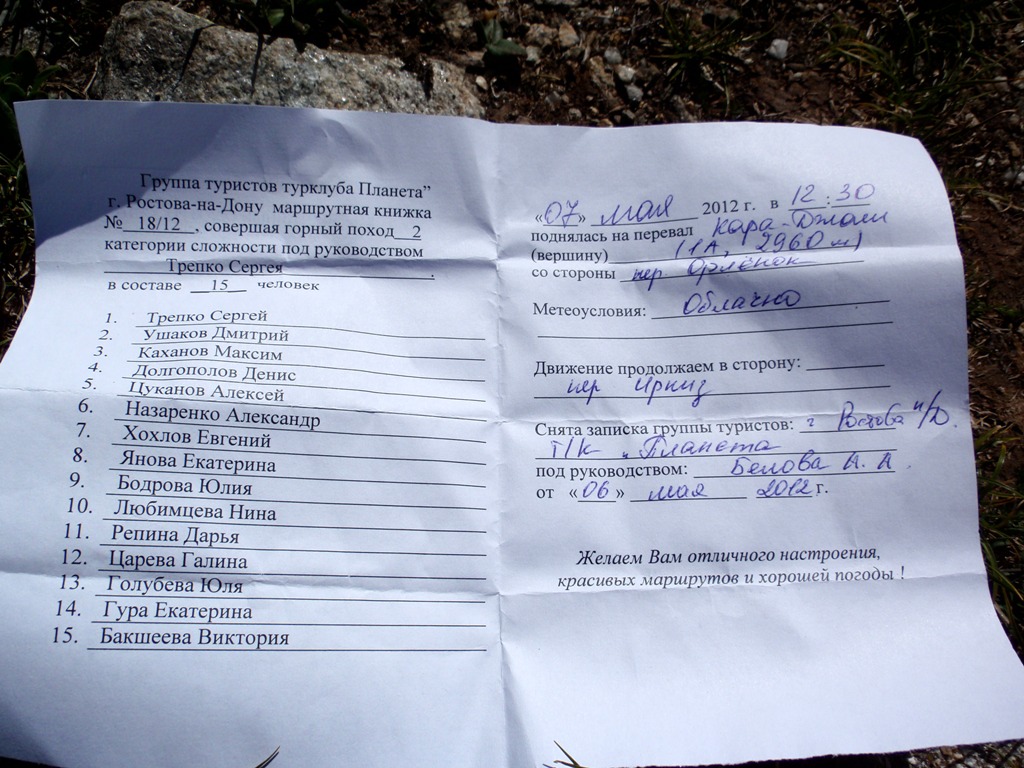 Группа туристов турклуба Планета”
г. Ростова-на-Дону маршрутная книжка
№ 18/12 , совершая горный поход 2
категории сложности под руководством
Трепко Сергея .
в составе 15 человек
1. Трепко Сергей
2. Ушаков Дмитрий
3. Каханов Максим
4. Долгополов Денис
5. Цуканов Алексей
6. Назаренко Александр
7. Хохлов Евгений
8. Янова Екатерина
9. Бодрова Юлия
10. Любимцева Нина
11. Репина Дарья
12. Царева Галина
13. Голубева Юля
14. Гура Екатерина
15. Бакшеева Виктория
«07» мая 2012 г. в 12:30
поднялась на перевал Кара-Джаш
(вершину) (1А, 2960 м)
со стороны пер Орлёнок
Метеоусловия: Облачно
Движение продолжаем в сторону:
пер Иркиз
Снята записка группы туристов: г Ростова н/Д.
т/к „Планета
под руководством: Белова А. А.
от «06» мая 2012 г.
Желаем Вам отличного настроения,
красивых маршрутов и хорошей погоды !